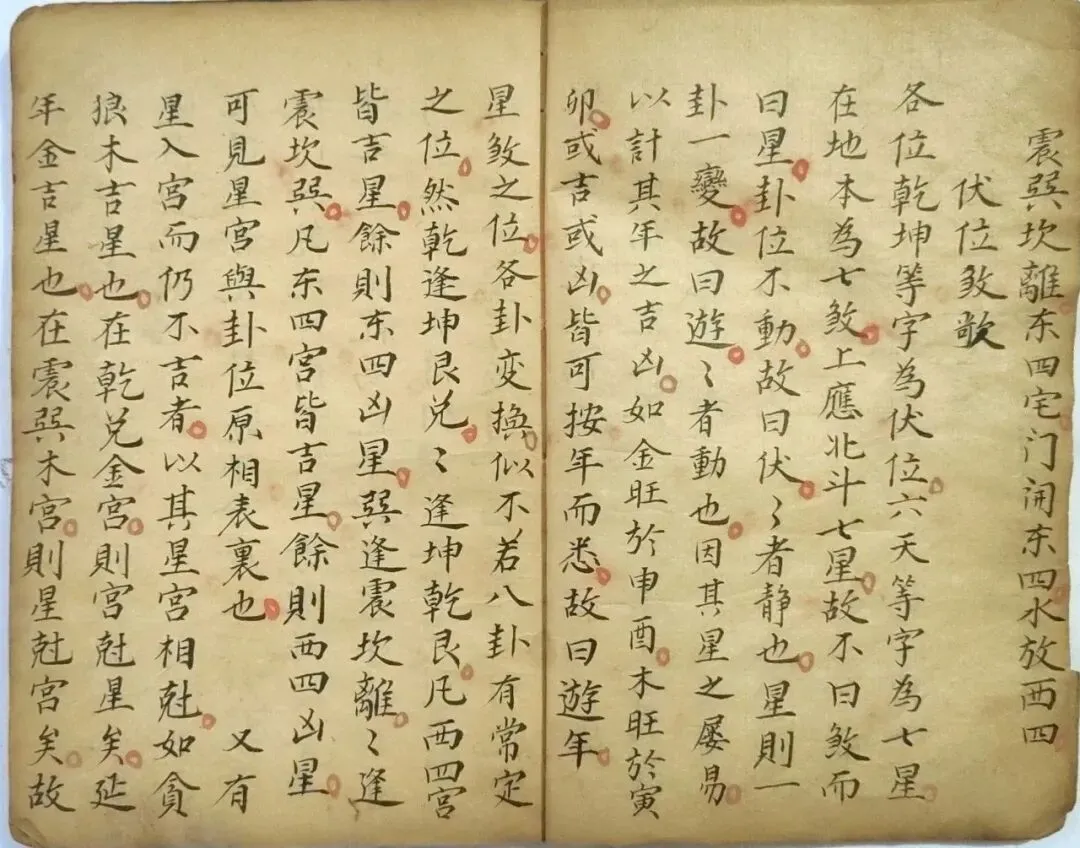 震巽坎離东四宅门闹东四水放西四
伏位敜歌
各位乾坤等字為伏位六天等字為七星
在地本為七敜上應北斗七星故不曰煞而
曰星卦位不動故曰伏〻者静也星則一
卦一變故曰遊〻者動也因其星之屡易
以計其年之吉凶如金旺於申酉木旺於寅
卯或吉或凶皆可按年而悉故曰遊年
星敜之位各卦变换似不若八卦有常定
之位然乾逢坤艮兑〻逢坤乾艮凡西四宮
皆吉星餘則东四凶星巽逢震坎離〻逢
震坎巽凡东四宫皆吉星餘則西四凶星
可見星宫與卦位原相表裏也 又有
星入宫而仍不吉者以其星宫相尅如貪
狼木吉星也在乾兑金宫則宫尅星矣延
年金吉星也在震巽木宫則星尅宫矣故